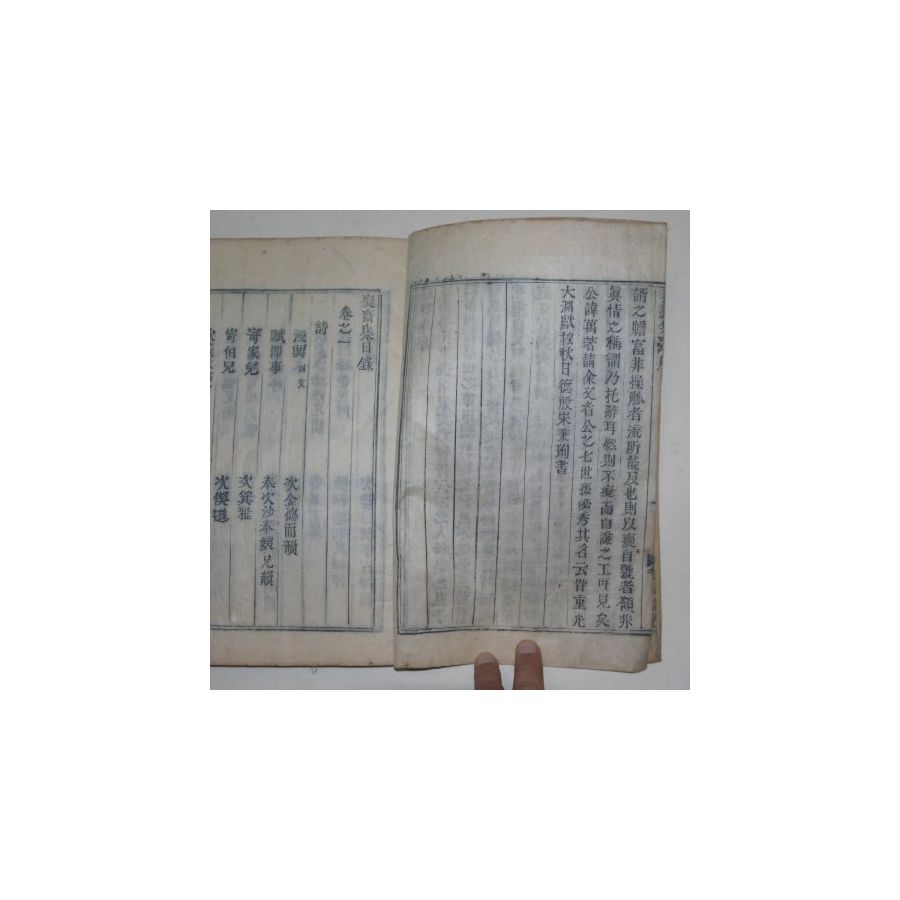 謂之贍富非操觚者流所能及也則以癡自號者顧非
眞情之稱謂乃托辭耳然則不癡而自謙之工可見矣
公諱萬蓍請余文者公之七世孫必秀其名云旹重光
大淵獻菊秋日德殷宋秉珣書
癡齋集目錄
卷之一
詩
漫興 四文
次金傷而韻
賦卽事
奉次沙奉緓兄韻
寄家兒
次箕雅
寄伯兄
次偰遜